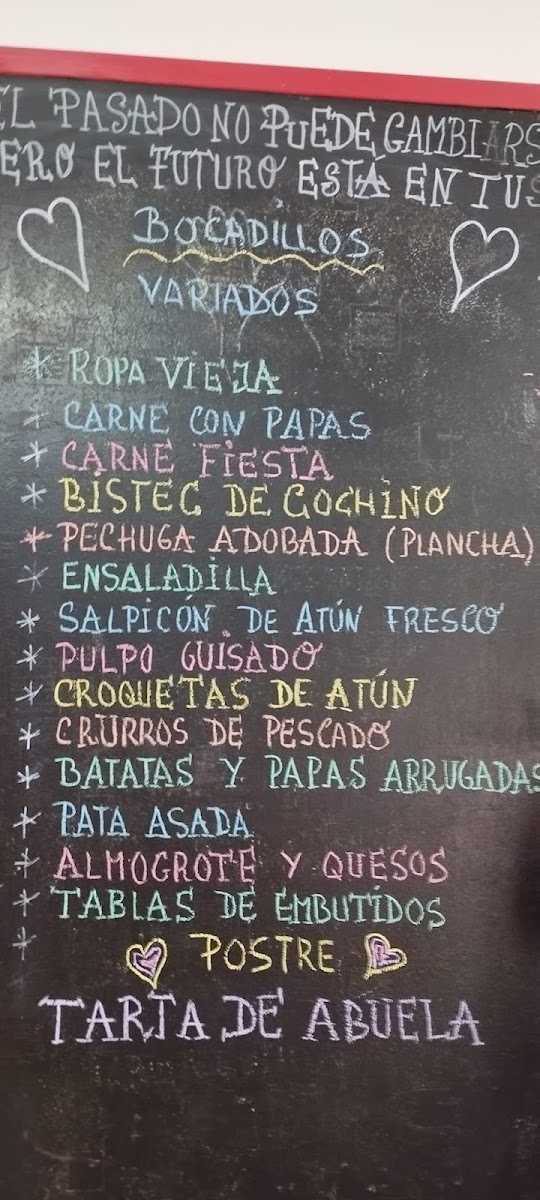 EL PASADO NO PUEDE GAMBIARS
ERO EL FUTURO ESTÁ EN TUS
BOCADILLOS
VARIADOS
* ROPA VIEJA
* CARNE CON PAPAS
* CARNE FIESTA
* BISTEC DE COCHINO
* PECHUGA ADOBADA (PLANCHA)
* ENSALADILLA
* SALPICÓN DE ATÚN FRESCO
* PULPO GUISADO
* CROQUETAS DE ATÚN
* CRURROS DE PESCADO
* BATATAS Y PAPAS ARRUGADAS
* PATA ASADA
* ALMOGROTE Y QUESOS
* TABLAS DE EMBUTIDOS
* POSTRE
TARTA DE ABUELA